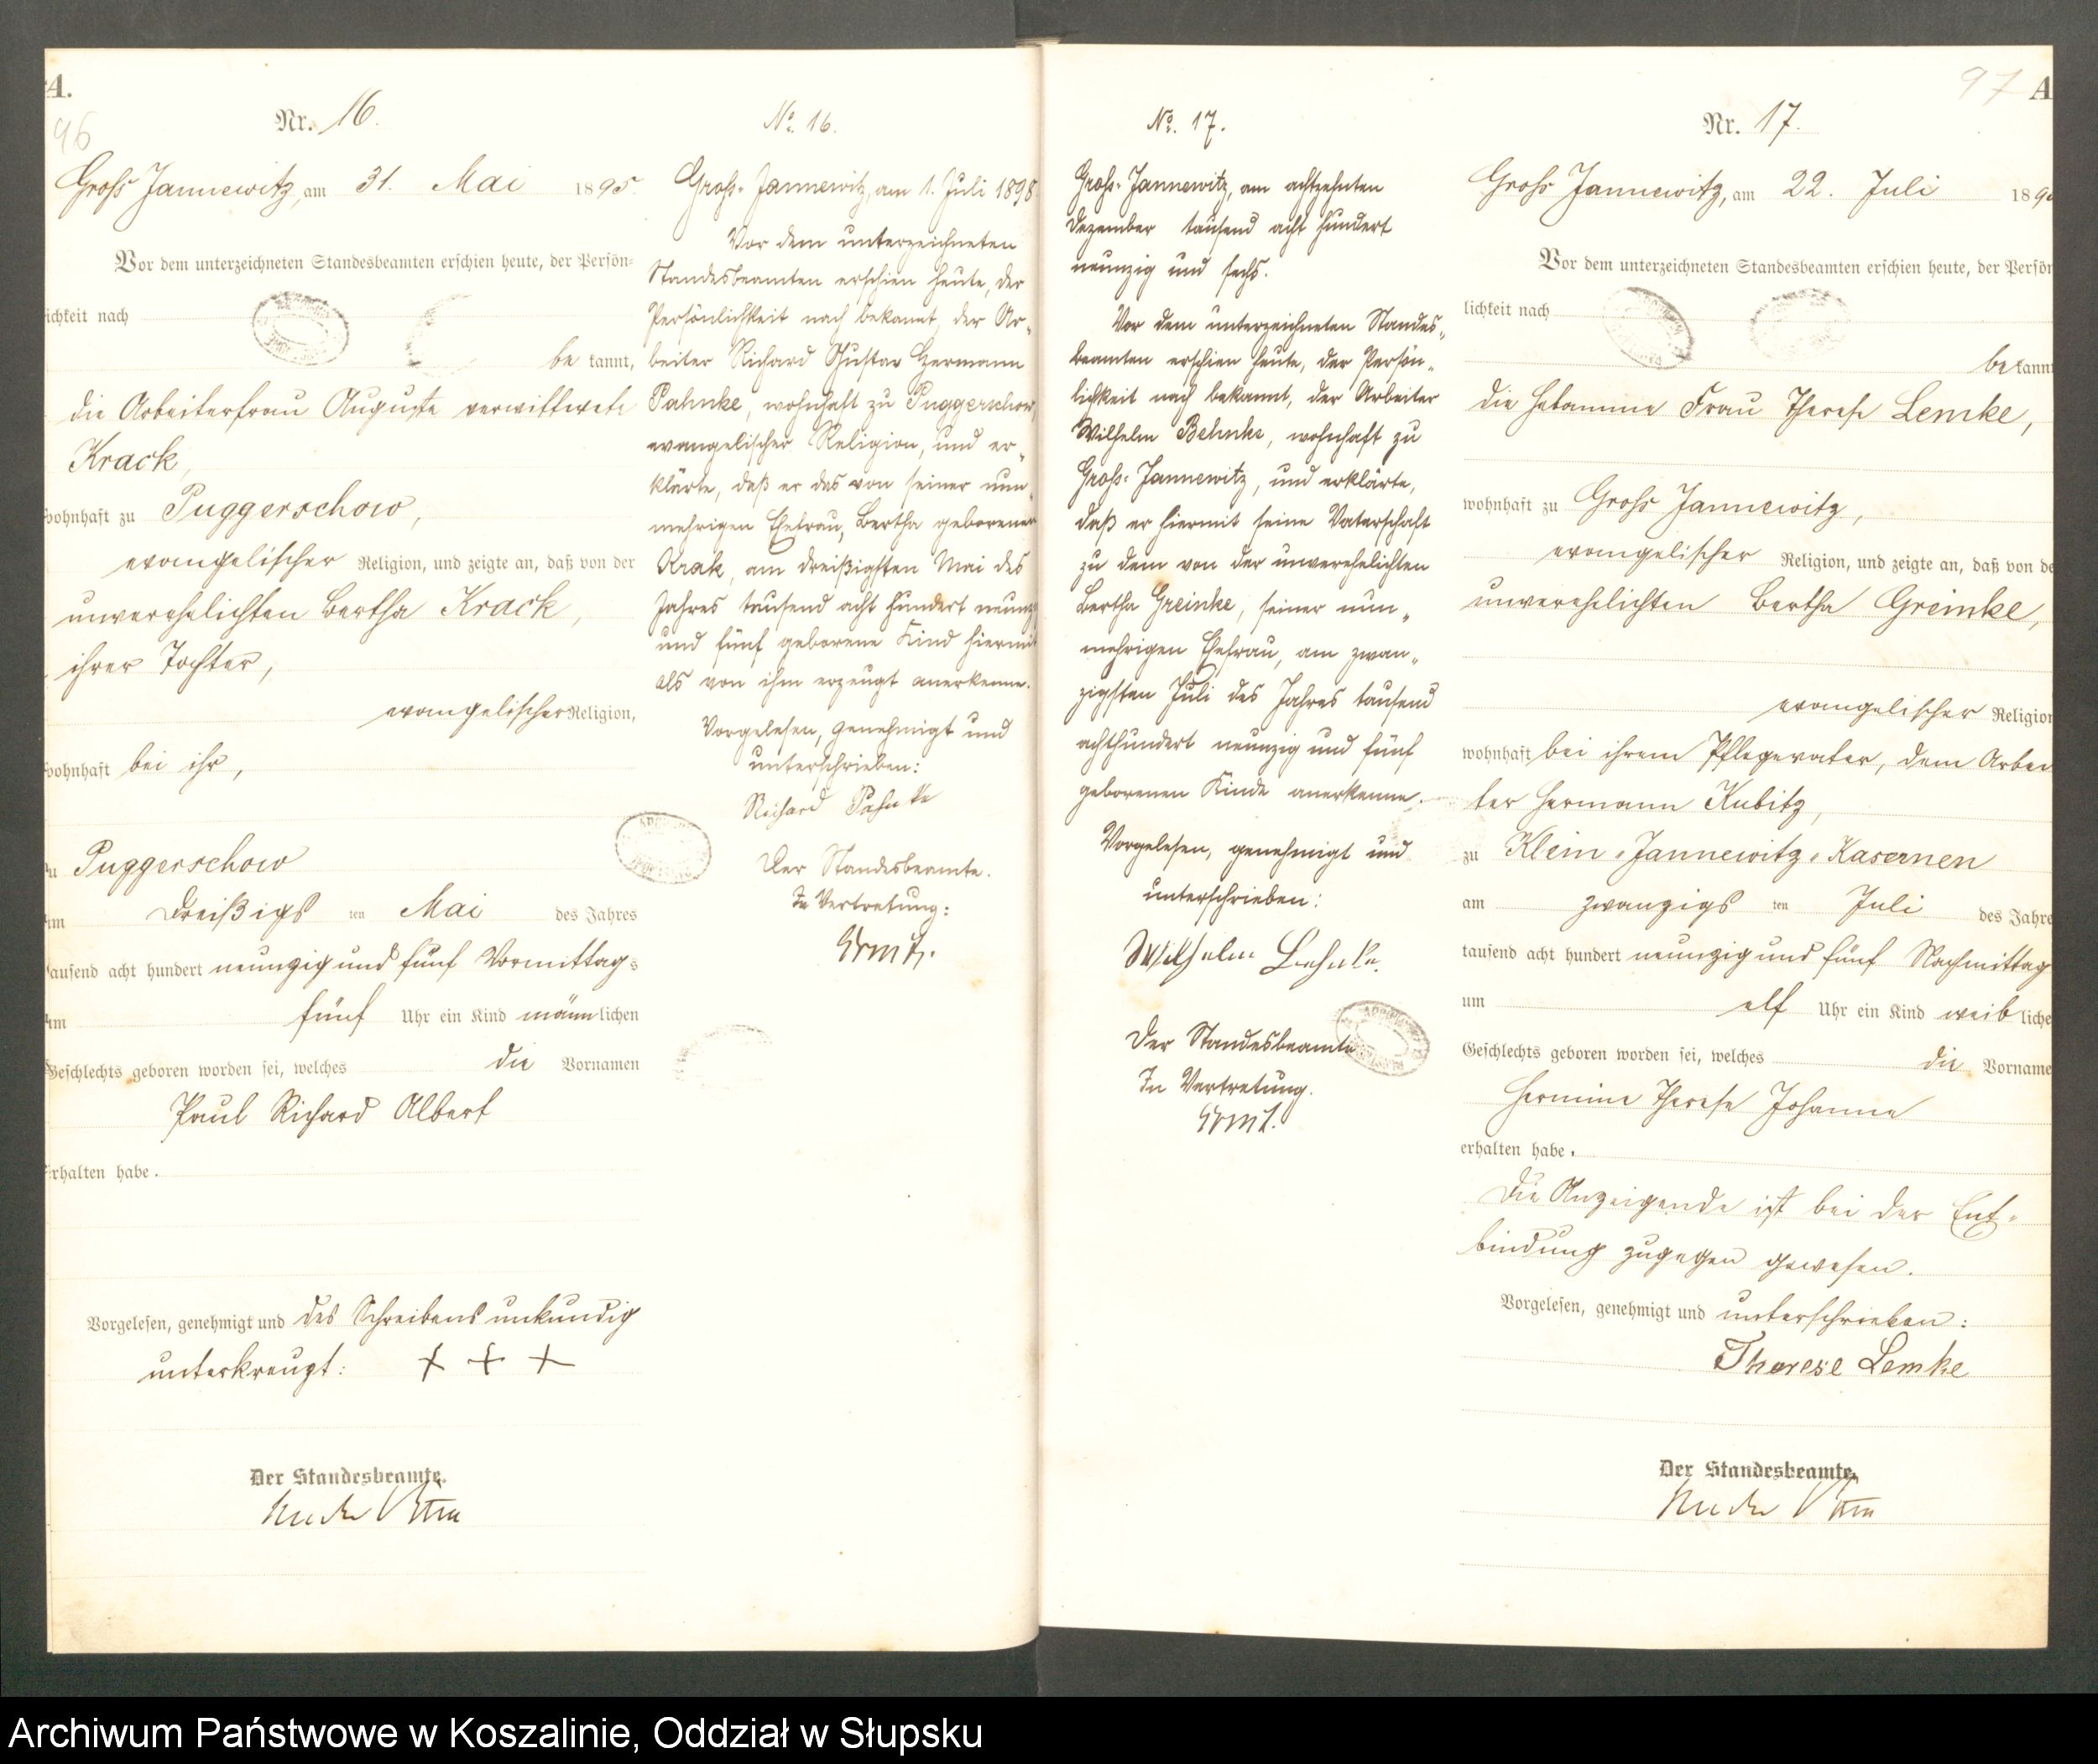 A.
96
Nr. 16.
Groß Jannewitz, am 31. Mai 1895.
Vor dem unterzeichneten Standesbeamten erschien heute, der Persön-
lichkeit nach
be kannt,
die Arbeiterfrau Auguste verwittwete
Krack,
wohnhaft zu Puggerschow,
evangelischer Religion, und zeigte an, daß von der
unverehelichten Bertha Krack,
ihrer Tochter,
evangelischer Religion,
wohnhaft bei ihr,
zu Puggerschow
am dreißigs ten Mai des Jahres
tausend acht hundert neunzig und fünf Vormittags
um fünf Uhr ein Kind männlichen
Geschlechts geboren worden sei, welches die Vornamen
Paul Richard Albert
erhalten habe.
Vorgelesen, genehmigt und des Schreibens unkundig
unterkreuzt: + + +
Der Standesbeamte.
No. 16.
Groß-Jannewitz, am 1. Juli 1898.
Vor dem unterzeichneten
Standesbeamten erschien heute, der
Persönlichkeit nach bekannt, der Ar-
beiter Richard Gustav Hermann
Pahnke, wohnhaft zu Puggerschow,
evangelischer Religion, und er-
klärte, daß er das von seiner nun-
mehrigen Ehefrau, Bertha geborenen
Krak, am dreißigsten Mai des
Jahres tausend acht hundert neunzig
und fünf geborene Kind hiermit
als von ihm erzeugt anerkenne.
Vorgelesen, genehmigt und
unterschrieben:
Richard Pahnke
Der Standesbeamte.
In Vertretung:
No. 17.
Groß-Jannewitz, am achtzehnten
Dezember tausend acht hundert
neunzig und sechs.
Vor dem unterzeichneten Standes-
beamten erschien heute, der Persön-
lichkeit nach bekannt, der Arbeiter
Wilhelm Behnke, wohnhaft zu
Groß-Jannewitz, und erklärte,
daß er hiermit seine Vaterschaft
zu dem von der unverehelichten
Bertha Greinke, seiner nun-
mehrigen Ehefrau, am zwan-
zigsten Juli des Jahres tausend
achthundert neunzig und fünf
geborenen Kinde anerkenne.
Vorgelesen, genehmigt und
unterschrieben:
Wilhelm Behnke.
Der Standesbeamte
In Vertretung.
97 A
Nr. 17.
Groß Jannewitz, am 22. Juli 189
Vor dem unterzeichneten Standesbeamten erschien heute, der Persön
lichkeit nach
be kannt
die Hebamme Frau Therese Lemke,
wohnhaft zu Groß Jannewitz,
evangelischer Religion, und zeigte an, daß von de
unverehelichten Bertha Greinke,
evangelischer Religion
wohnhaft bei ihrem Pflegevater, dem Arbei
ter Hermann Kubitz,
zu Klein-Jannewitz-Kasernen
am zwanzigs ten Juli des Jahre
tausend acht hundert neunzig und fünf Nachmittag
um elf Uhr ein Kind weib liche
Geschlechts geboren worden sei, welches die Vorname
Hermine Therese Johanne
erhalten habe.
Die Anzeigende ist bei der Ent-
bindung zugegen gewesen.
Vorgelesen, genehmigt und unterschrieben:
Therese Lemke
Der Standesbeamte.
Archiwum Państwowe w Koszalinie, Oddział w Słupsku